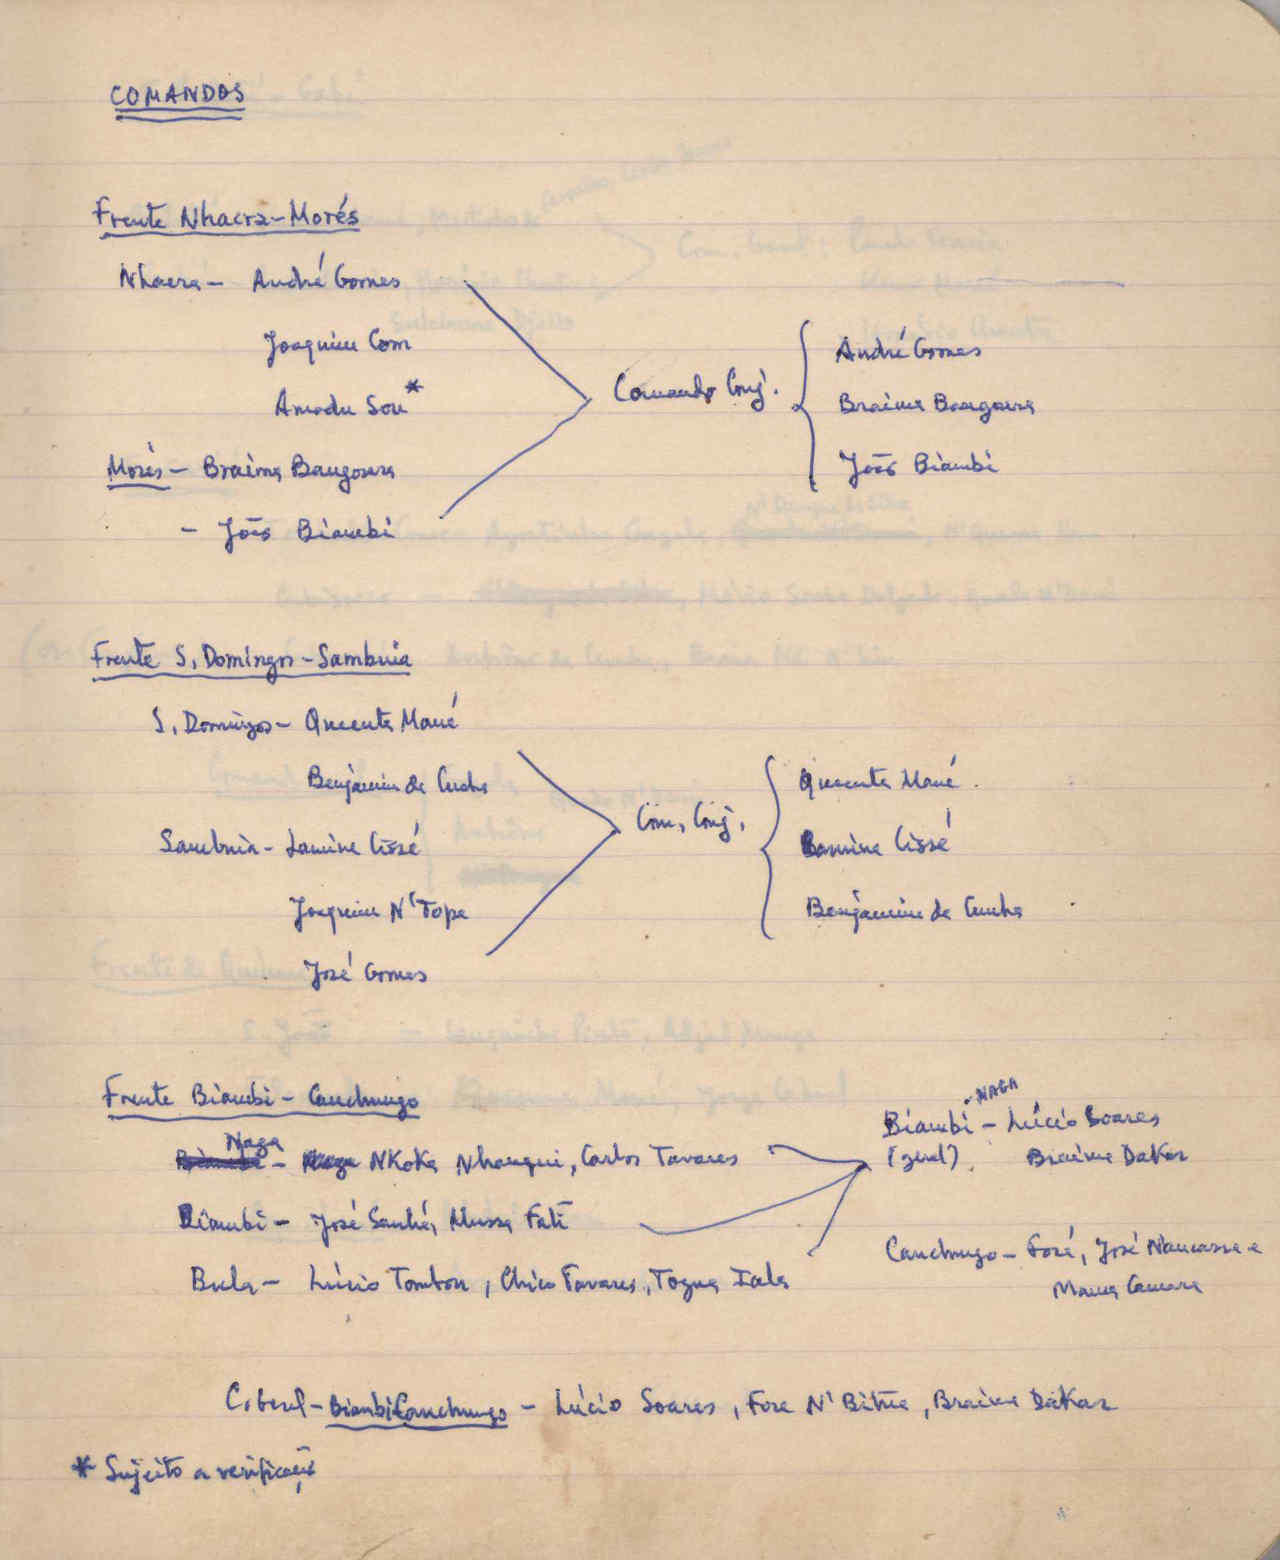 COMANDOS
Frente Nhacra-Morés
Nhacra - André Gomes
Joaquim Com
Amadu Sou*
Morés - Braima Bangoura
- João Biambi
Comando Conj.
André Gomes
Braima Bangoura
João Biambi
Frente S. Domingos - Sambuia
S. Domingos - Quecuta Mané
Benjamim da Cunha
Sambuia - Lamine Cissé
Joaquim N'Topa
José Gomes
Com. Conj.
Quecuta Mané.
Lamine Cissé
Benjamim da Cunha
Frente Biambi - Canchungo
Naga - NKoka Nhangui, Carlos Tavares
Biambi - José Sanhá, Mussa Fati
Bula - Lúcio Tombon, Chico Tavares, Togna Iala
Biambi - NAGA - Lúcio Soares
(geral). Braima Dakar
Canchungo - Foré, José Nancassa e
Mama Camara
C. Geral - Biambi Canchungo - Lúcio Soares, Fore N'Bitna, Braima Dakar
* Sujeito a verificação